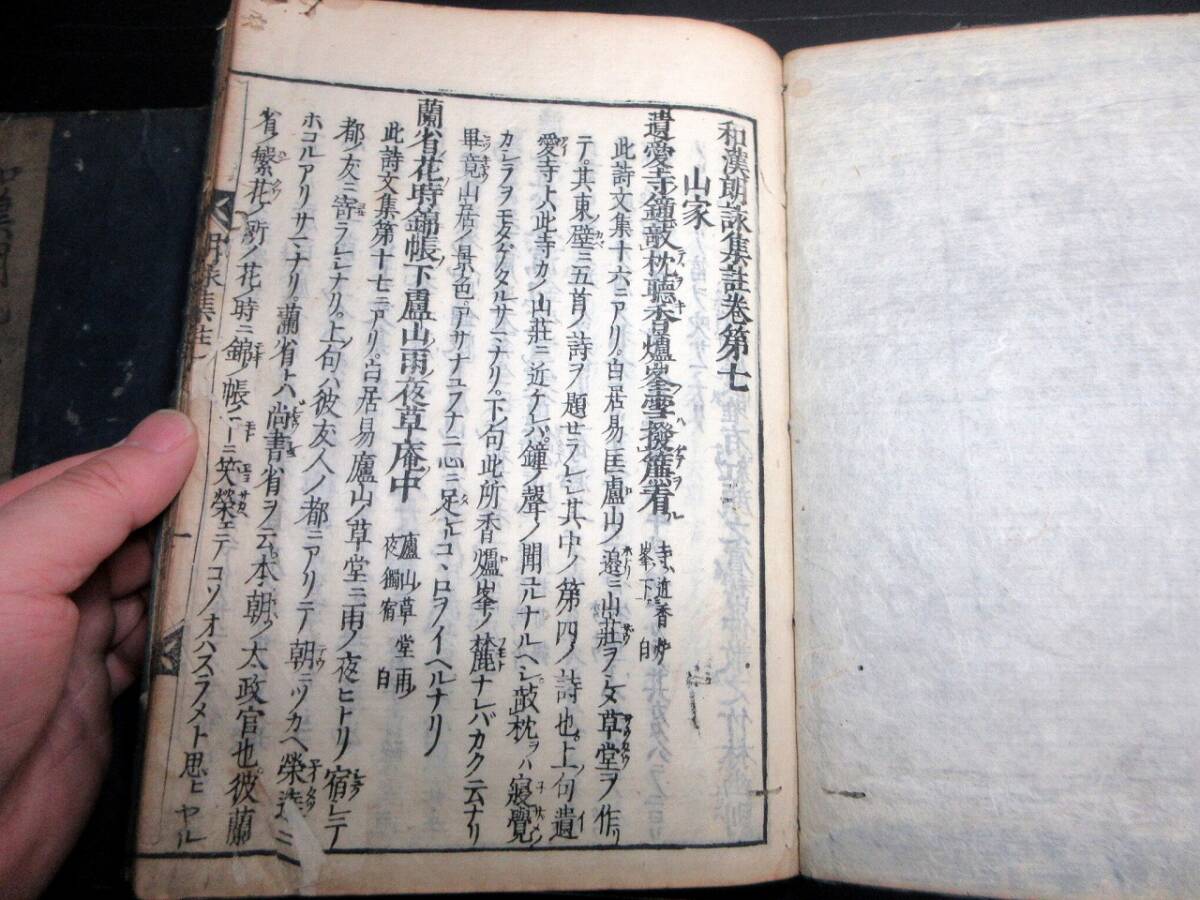 和漢朗詠集註卷第七
山家
遺愛寺鐘敧枕聽香爐峯雪撥簾看
寺近香炉
峯下 白
此詩文集十六ニアリ。白居易匡廬山ノ邉ニ山荘ヲシメ草堂ヲ作リ
テ。其東壁ニ五首ノ詩ヲ題セラレシ其中ノ第四ノ詩也。上句遺
愛寺ハ此寺カノ山莊ニ近ケレバ鐘ノ聲ノ聞ユルナルヘシ敧枕ヲハ寢覺
カシラヲモタゲタルサマナリ。下句此所香爐峯ノ麓ナレバカク云ナリ
畢竟山居ノ景色。アサナユフナニ心ニ足レルコヽロヲイヘルナリ
蘭省花時錦帳下廬山雨夜草庵中
廬山草堂雨
夜獨宿 白
此詩文集第十七ニアリ。白居易廬山ノ草堂ニ雨ノ夜ヒトリ宿シテ
都ノ友ニ寄ラレシナリ。上句ハ彼友人ノ都ニアリテ朝ニツカヘ榮達ニ
ホコルアリサマナリ。蘭省トハ尚書省ヲ云。本朝ノ太政官也。彼蘭
省ノ繁花ノ所ノ花ノ時ニ錦ノ帳ノモトニ榮テコソオハスラメト思ヒヤル
朗詠集註
一